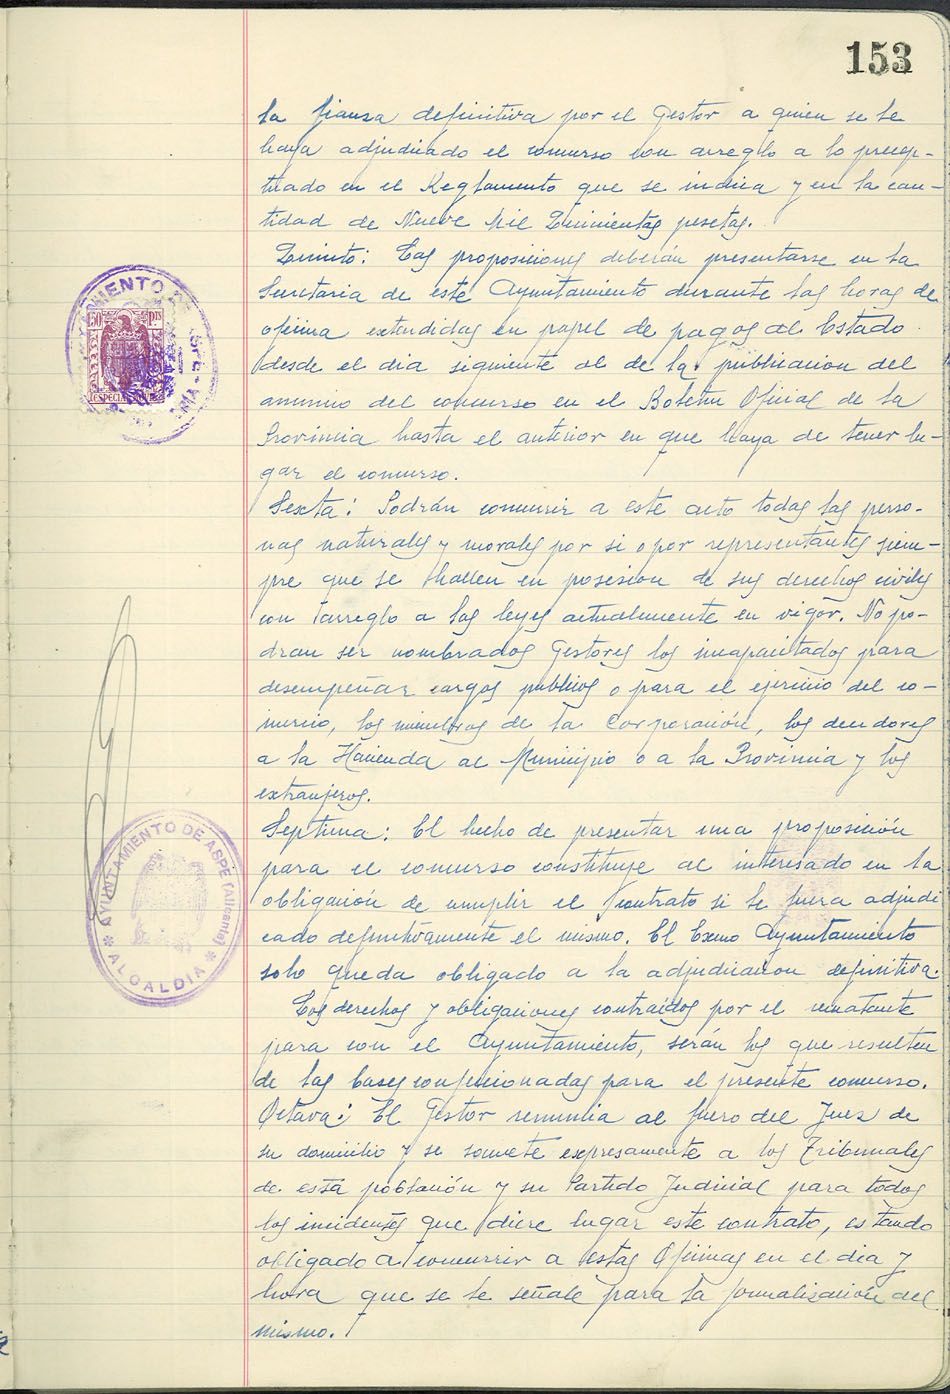 153
la fianza definitiva por el Gestor a quien se le
haya adjudicado el concurso con arreglo a lo precep-
tuado en el Reglamento que se indica y en la can-
tidad de Nueve Mil Quinientas pesetas.
Quinto: Las proposiciones deberán presentarse en la
Secretaria de este Ayuntamiento durante las horas de
oficina extendidas en papel de pagos al Estado
desde el dia siguiente al de la publicacion del
anuncio del concurso en el Boletin Oficial de la
Provincia hasta el anterior en que haya de tener lu-
gar el concurso.
Sexta: Podrán concurrir a este acto todas las perso-
nas naturales y morales por si o por representantes siem-
pre que se hallen en posesion de sus derechos civiles
con arreglo a las leyes actualmente en vigor. No po-
dran ser nombrados Gestores los incapacitados para
desempeñar cargos publicos o para el ejercicio del co-
mercio, los miembros de la Corporación, los deudores
a la Hacienda al Municipio o a la Provincia y los
extranjeros.
Septima: El hecho de presentar una proposición
para el concurso constituye al interesado en la
obligación de cumplir el contrato si le fuera adjudi
cado definitivamente el mismo. El Excmo Ayuntamiento
solo queda obligado a la adjudicacion definitiva.
Los derechos y obligaciones contraidos por el rematante
para con el Ayuntamiento, serán los que resulten
de las bases confeccionadas para el presente concurso.
Octava: El Gestor renuncia al fuero del Juez de
su domicilio y se somete expresamente a los Tribunales
de esta población y su Partido Judicial para todos
los incidentes que diere lugar este contrato, estando
obligado a concurrir a estas Oficinas en el dia y
hora que se le señale para la formalización del
mismo.
50 PTS
ESPECIAL
AYUNTAMIENTO DE ASPE (Alicante)
* ALCALDIA *